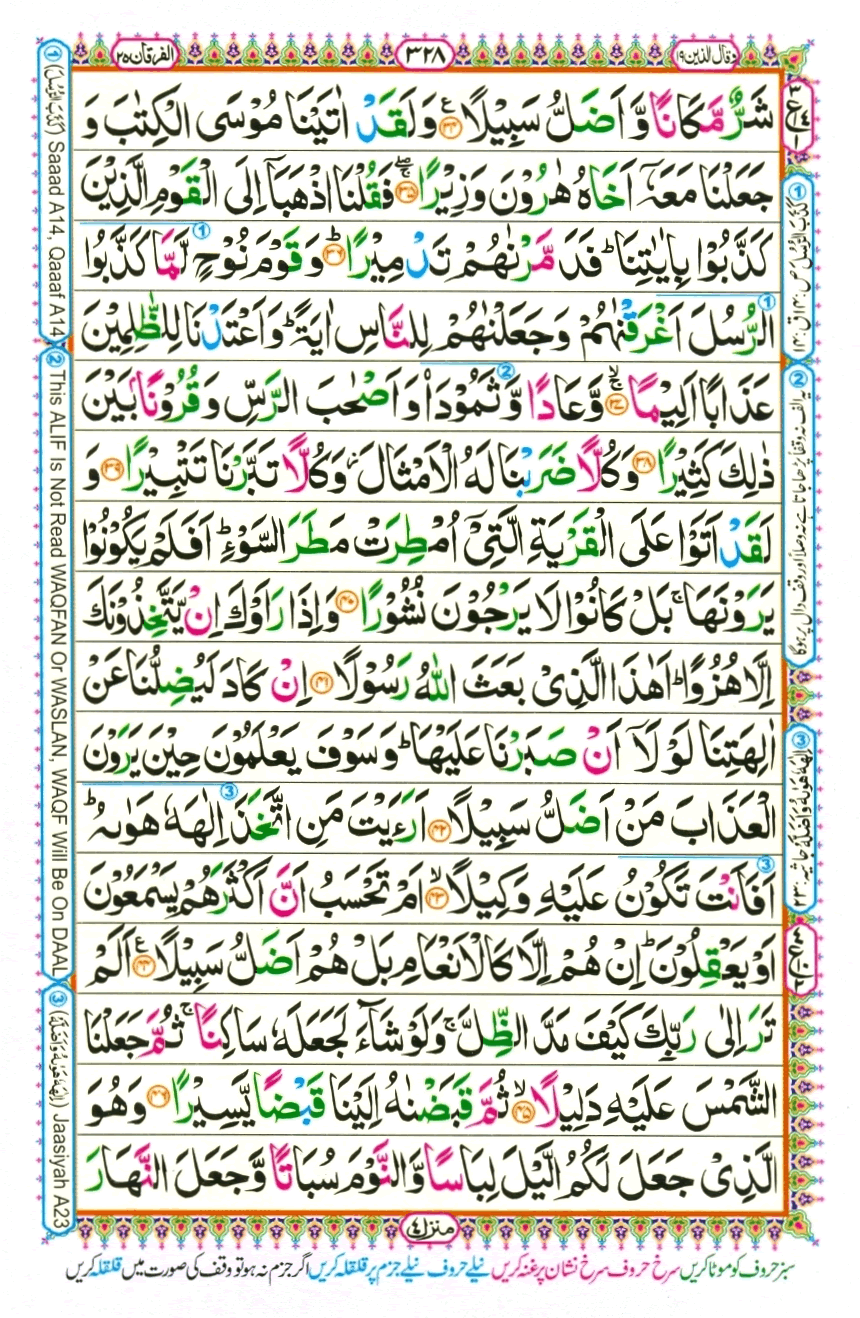 وقال الذین ۱۹
۳۲۸
الفرقان ۲۵
شَرٌّ مَّكَانًا وَّ اَضَلُّ سَبِیْلًا ﴿۳۴﴾ وَ لَقَدْ اٰتَیْنَا مُوْسَى الْكِتٰبَ وَ
جَعَلْنَا مَعَهٗۤ اَخَاهُ هٰرُوْنَ وَزِیْرًا ﴿۳۵﴾ فَقُلْنَا اذْهَبَاۤ اِلَى الْقَوْمِ الَّذِیْنَ
كَذَّبُوْا بِاٰیٰتِنَا ؕ فَدَمَّرْنٰهُمْ تَدْمِیْرًا ﴿۳۶﴾ وَ قَوْمَ نُوْحٍ لَّمَّا كَذَّبُوا
الرُّسُلَ اَغْرَقْنٰهُمْ وَ جَعَلْنٰهُمْ لِلنَّاسِ اٰیَةً ؕ وَ اَعْتَدْنَا لِلظّٰلِمِیْنَ
عَذَابًا اَلِیْمًا ﴿۳۷﴾ وَّ عَادًا وَّ ثَمُوْدَا۠ وَ اَصْحٰبَ الرَّسِّ وَ قُرُوْنًۢا بَیْنَ
ذٰلِكَ كَثِیْرًا ﴿۳۸﴾ وَ كُلًّا ضَرَبْنَا لَهُ الْاَمْثَالَ ؗ وَ كُلًّا تَبَّرْنَا تَتْبِیْرًا ﴿۳۹﴾ وَ
لَقَدْ اَتَوْا عَلَى الْقَرْیَةِ الَّتِیْۤ اُمْطِرَتْ مَطَرَ السَّوْءِ ؕ اَفَلَمْ یَكُوْنُوْا
یَرَوْنَهَا ۚ بَلْ كَانُوْا لَا یَرْجُوْنَ نُشُوْرًا ﴿۴۰﴾ وَ اِذَا رَاَوْكَ اِنْ یَّتَّخِذُوْنَكَ
اِلَّا هُزُوًا ؕ اَهٰذَا الَّذِیْ بَعَثَ اللّٰهُ رَسُوْلًا ﴿۴۱﴾ اِنْ كَادَ لَیُضِلُّنَا عَنْ
اٰلِهَتِنَا لَوْ لَاۤ اَنْ صَبَرْنَا عَلَیْهَا ؕ وَ سَوْفَ یَعْلَمُوْنَ حِیْنَ یَرَوْنَ
الْعَذَابَ مَنْ اَضَلُّ سَبِیْلًا ﴿۴۲﴾ اَرَءَیْتَ مَنِ اتَّخَذَ اِلٰهَهٗ هَوٰىهُ ؕ
اَفَاَنْتَ تَكُوْنُ عَلَیْهِ وَكِیْلًا ﴿۴۳﴾ اَمْ تَحْسَبُ اَنَّ اَكْثَرَهُمْ یَسْمَعُوْنَ
اَوْ یَعْقِلُوْنَ ؕ اِنْ هُمْ اِلَّا كَالْاَنْعَامِ بَلْ هُمْ اَضَلُّ سَبِیْلًا ﴿۴۴﴾ اَلَمْ
تَرَ اِلٰى رَبِّكَ كَیْفَ مَدَّ الظِّلَّ ۚ وَ لَوْ شَآءَ لَجَعَلَهٗ سَاكِنًا ۚ ثُمَّ جَعَلْنَا
الشَّمْسَ عَلَیْهِ دَلِیْلًا ﴿۴۵﴾ ثُمَّ قَبَضْنٰهُ اِلَیْنَا قَبْضًا یَّسِیْرًا ﴿۴۶﴾ وَ هُوَ
الَّذِیْ جَعَلَ لَكُمُ الَّیْلَ لِبَاسًا وَّ النَّوْمَ سُبَاتًا وَّ جَعَلَ النَّهَارَ
منزل ۴
سبز حروف کو موٹا کریں سرخ حروف سرخ نشان پر غنہ کریں نیلے حروف نیلے جزم پر قلقلہ کریں اگر جزم نہ ہو تو وقف کی صورت میں قلقلہ کریں
① كَذَّبَ الرُّسُلَ ص : ۱۴، ق : ۱۴
② یہ الف نہ وقفاً پڑھا جاتا ہے نہ وصلاً اور وقف دال پر ہوگا
③ اِلٰهَهٗ هَوٰىهُ وَ اَضَلَّهُ جاثیہ : ۲۳
① (كَذَّبَ الرُّسُلَ) Saaad A14, Qaaaf A14
② This ALIF Is Not Read WAQFAN Or WASLAN, WAQF Will Be On DAAL
③ (اِلٰهَهٗ هَوٰىهُ وَ اَضَلَّهُ) Jaasiyah A23